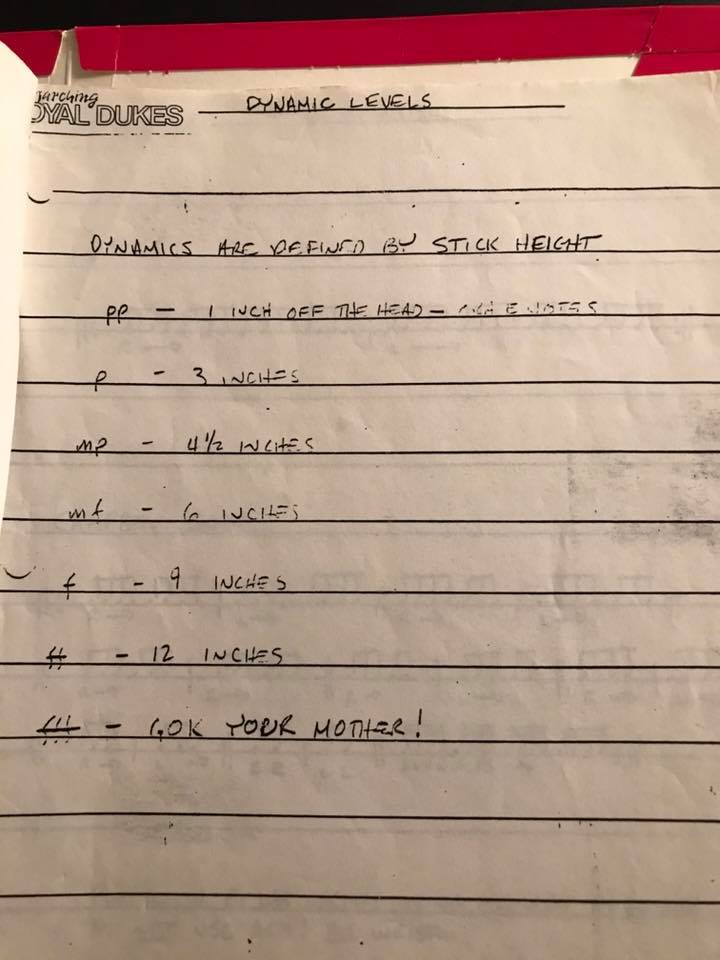 arching
OYAL DUKES
DYNAMIC LEVELS
DYNAMICS ARE DEFINED BY STICK HEIGHT
pp — 1 INCH OFF THE HEAD —
p - 3 INCHES
mp - 4 1/2 INCHES
mf - 6 INCHES
f - 9 INCHES
ff - 12 INCHES
fff - YOUR MOTHER!